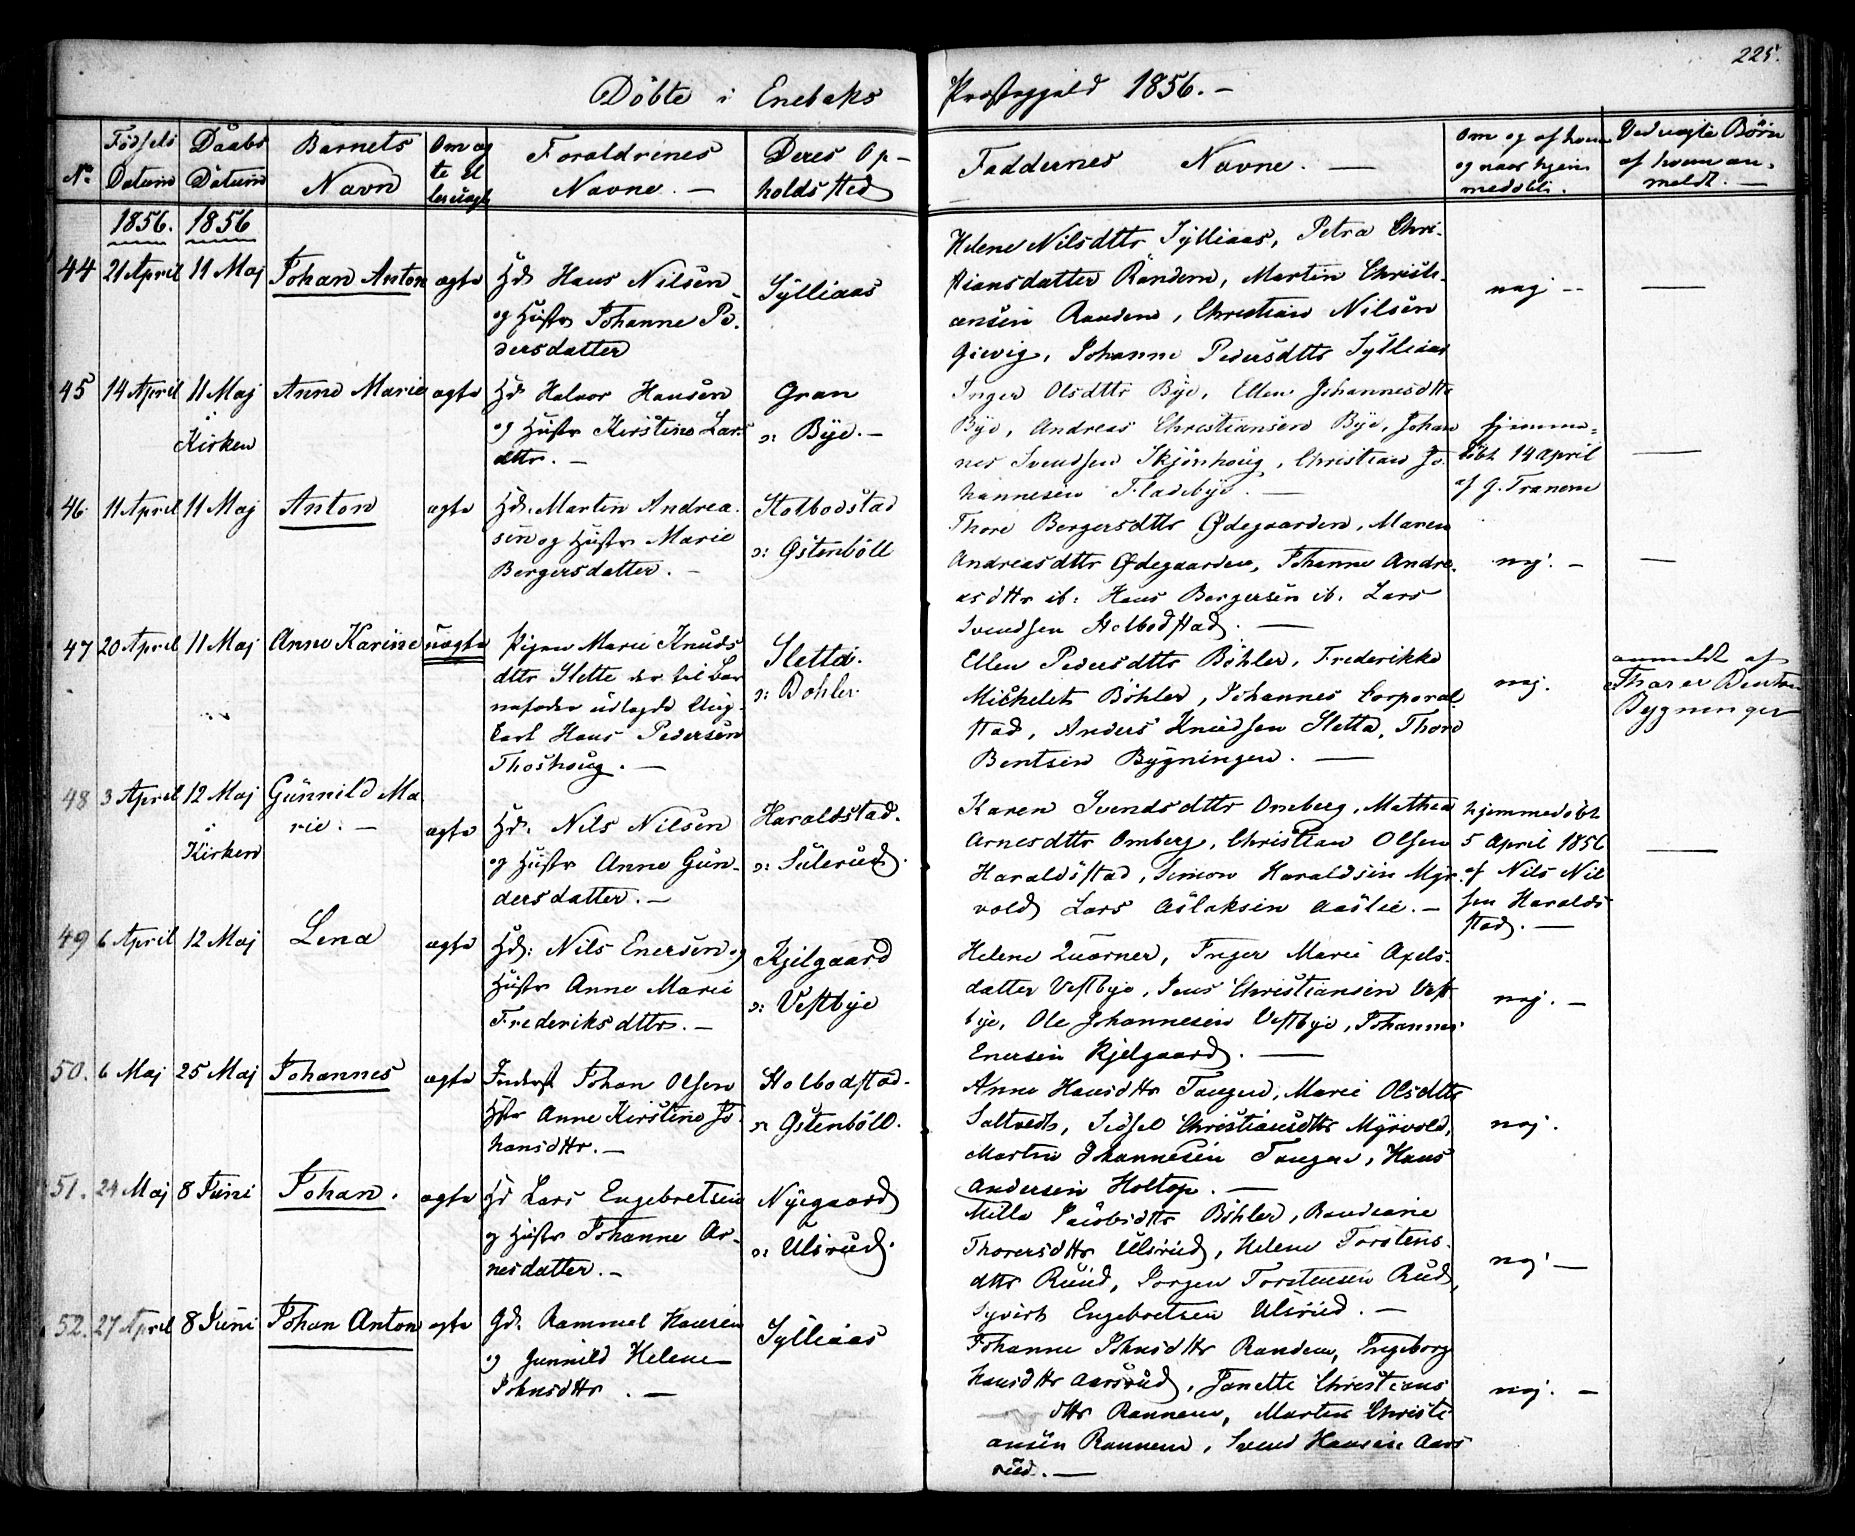 225.
Döbte i Enebaks Præstegjeld 1856. –
No.
Fødsels Datum
Daabs Datum
Barnets Navn
Om ægte el. ler uægte
Forældrenes Navne. –
Deres Op- holdssted
Faddernes Navne. —
Om og af hvem og naar hjem meddelt.
Ved uægte Børn af hvem an- meldt. –
1856. 1856
44 21 April 11 Maj Johan Anton ægte
Gd. Hans Nilsen
og Hustr Johanne Pe-
dersdatter
Sylliaas
Helene Nilsdttr Sylliaas, Petra Chri-
stiansdatter Randem, Martin Christi-
ansen Randem, Christian Nilsen
Gjevig, Johanne Pedersdttr Sylliaas
nej --
45 14 April 11 Maj Anne Marie ægte
i
Kirken
Gd. Halvor Hansen
og Hustr Kirstine Lars
dttr. –
Gran
o: Bye. –
Inger Olsdttr Bye, Ellen Johannesdttr
Bye, Andreas Christiansen Bye, Johan
nes Svendsen Skjønhoug, Christian Jo-
hannesen Fladebye. –
hjemme-
döbt 14 April
af J. Tranem
46 11 April 11 Maj Anton ægte
Gd. Martin Andrea-
sen og Hustr Marie
Bergersdatter. –
Holbodstad
o: Østenböll
Thore Bergersdttr Ødegaarden, Maren
Andreasdttr Ødegaarden, Johanne Andre-
asdttr ib: Hans Bergersen ib. Lars
Svendsen Holbodstad. –
nej. –
47 20 April 11 Maj Anne Karine uægte
Pigen Marie Knuds
dttr Slette der til Bar
nefader udlagde Ung-
karl Hans Pedersen
Thoshoug. –
Sletta.
o: Bohler.
Ellen Pedersdttr Böhler, Frederikke
Michelet Böhler, Johannes Corporal
stad, Anders Knudsen Sletta, Thore
Bentsen Bygningen. –
nej.
anmeldt af
Thorer Bentsen
Bygningen
48 3 April 12 Maj Gunnild Ma
rie. – ægte
i
Kirken
Gd. Nils Nilsen
og Hustr Anne Gun-
dersdatter. –
Haraldstad.
o: Sulerud.
Karen Svendsdttr Omberg, Mathea
Arnesdttr Omberg, Christian Olsen
Haraldstad, Simon Haraldsen Myr-
vold, Lars Aslaksen Aaslie. –
hjemmedöbt
5 April 1856
af Nils Nil
sen Haralds
stad. –
49 6 April 12 Maj Lena ægte
Gd: Nils Enersen og
Hustr Anne Marie
Frederiksdttr. –
Kjelgaard
o: Vestbye
Helene Quarner, Inger Marie Axels-
datter Vestbye, Jens Christiansen Vest
bye, Ole Johannesen Vestbye, Johannes
Enersen Kjelgaard. –
nej. –
50. 6 Maj 25 Maj Johannes ægte
Inderst Johan Olsen
Hstr Anne Kirstine Jo
hansdttr. –
Holbodstad.
o: Østenböll.
Anne Hansdttr Tangen, Marie Olsdttr
Saltvedt, Sidsel Christiansdttr Myrvold,
Martin Johannesen Tangen, Hans
Andersen Holtop. –
nej.
51. 24 Maj 8 Juni Johan. ægte
Gd Lars Engebretsen
og Hustr Johanne Ar-
nesdatter. –
Nyegaard
o: Ulsrud.
Mille Jacobsdttr Böhler, Randiane
Thorersdttr Ulsrud, Helene Torstens-
dttr Ruud, Jørgen Torstensen Rud,
Syvert Engebretsen Ulsrud. –
nej –
52. 27 April 8 Juni Johan Anton ægte
Gd. Rammel Hansen
og Gunnild Helene
Johnsdttr. –
Sylliaas
Johanne Johnsdttr Randem, Ingeborg
Hansdttr Aarsrud, Janette Christians
dttr Rannem, Marten Christi
ansen Rannem, Svend Hansen Aars
rud. –
nej. –